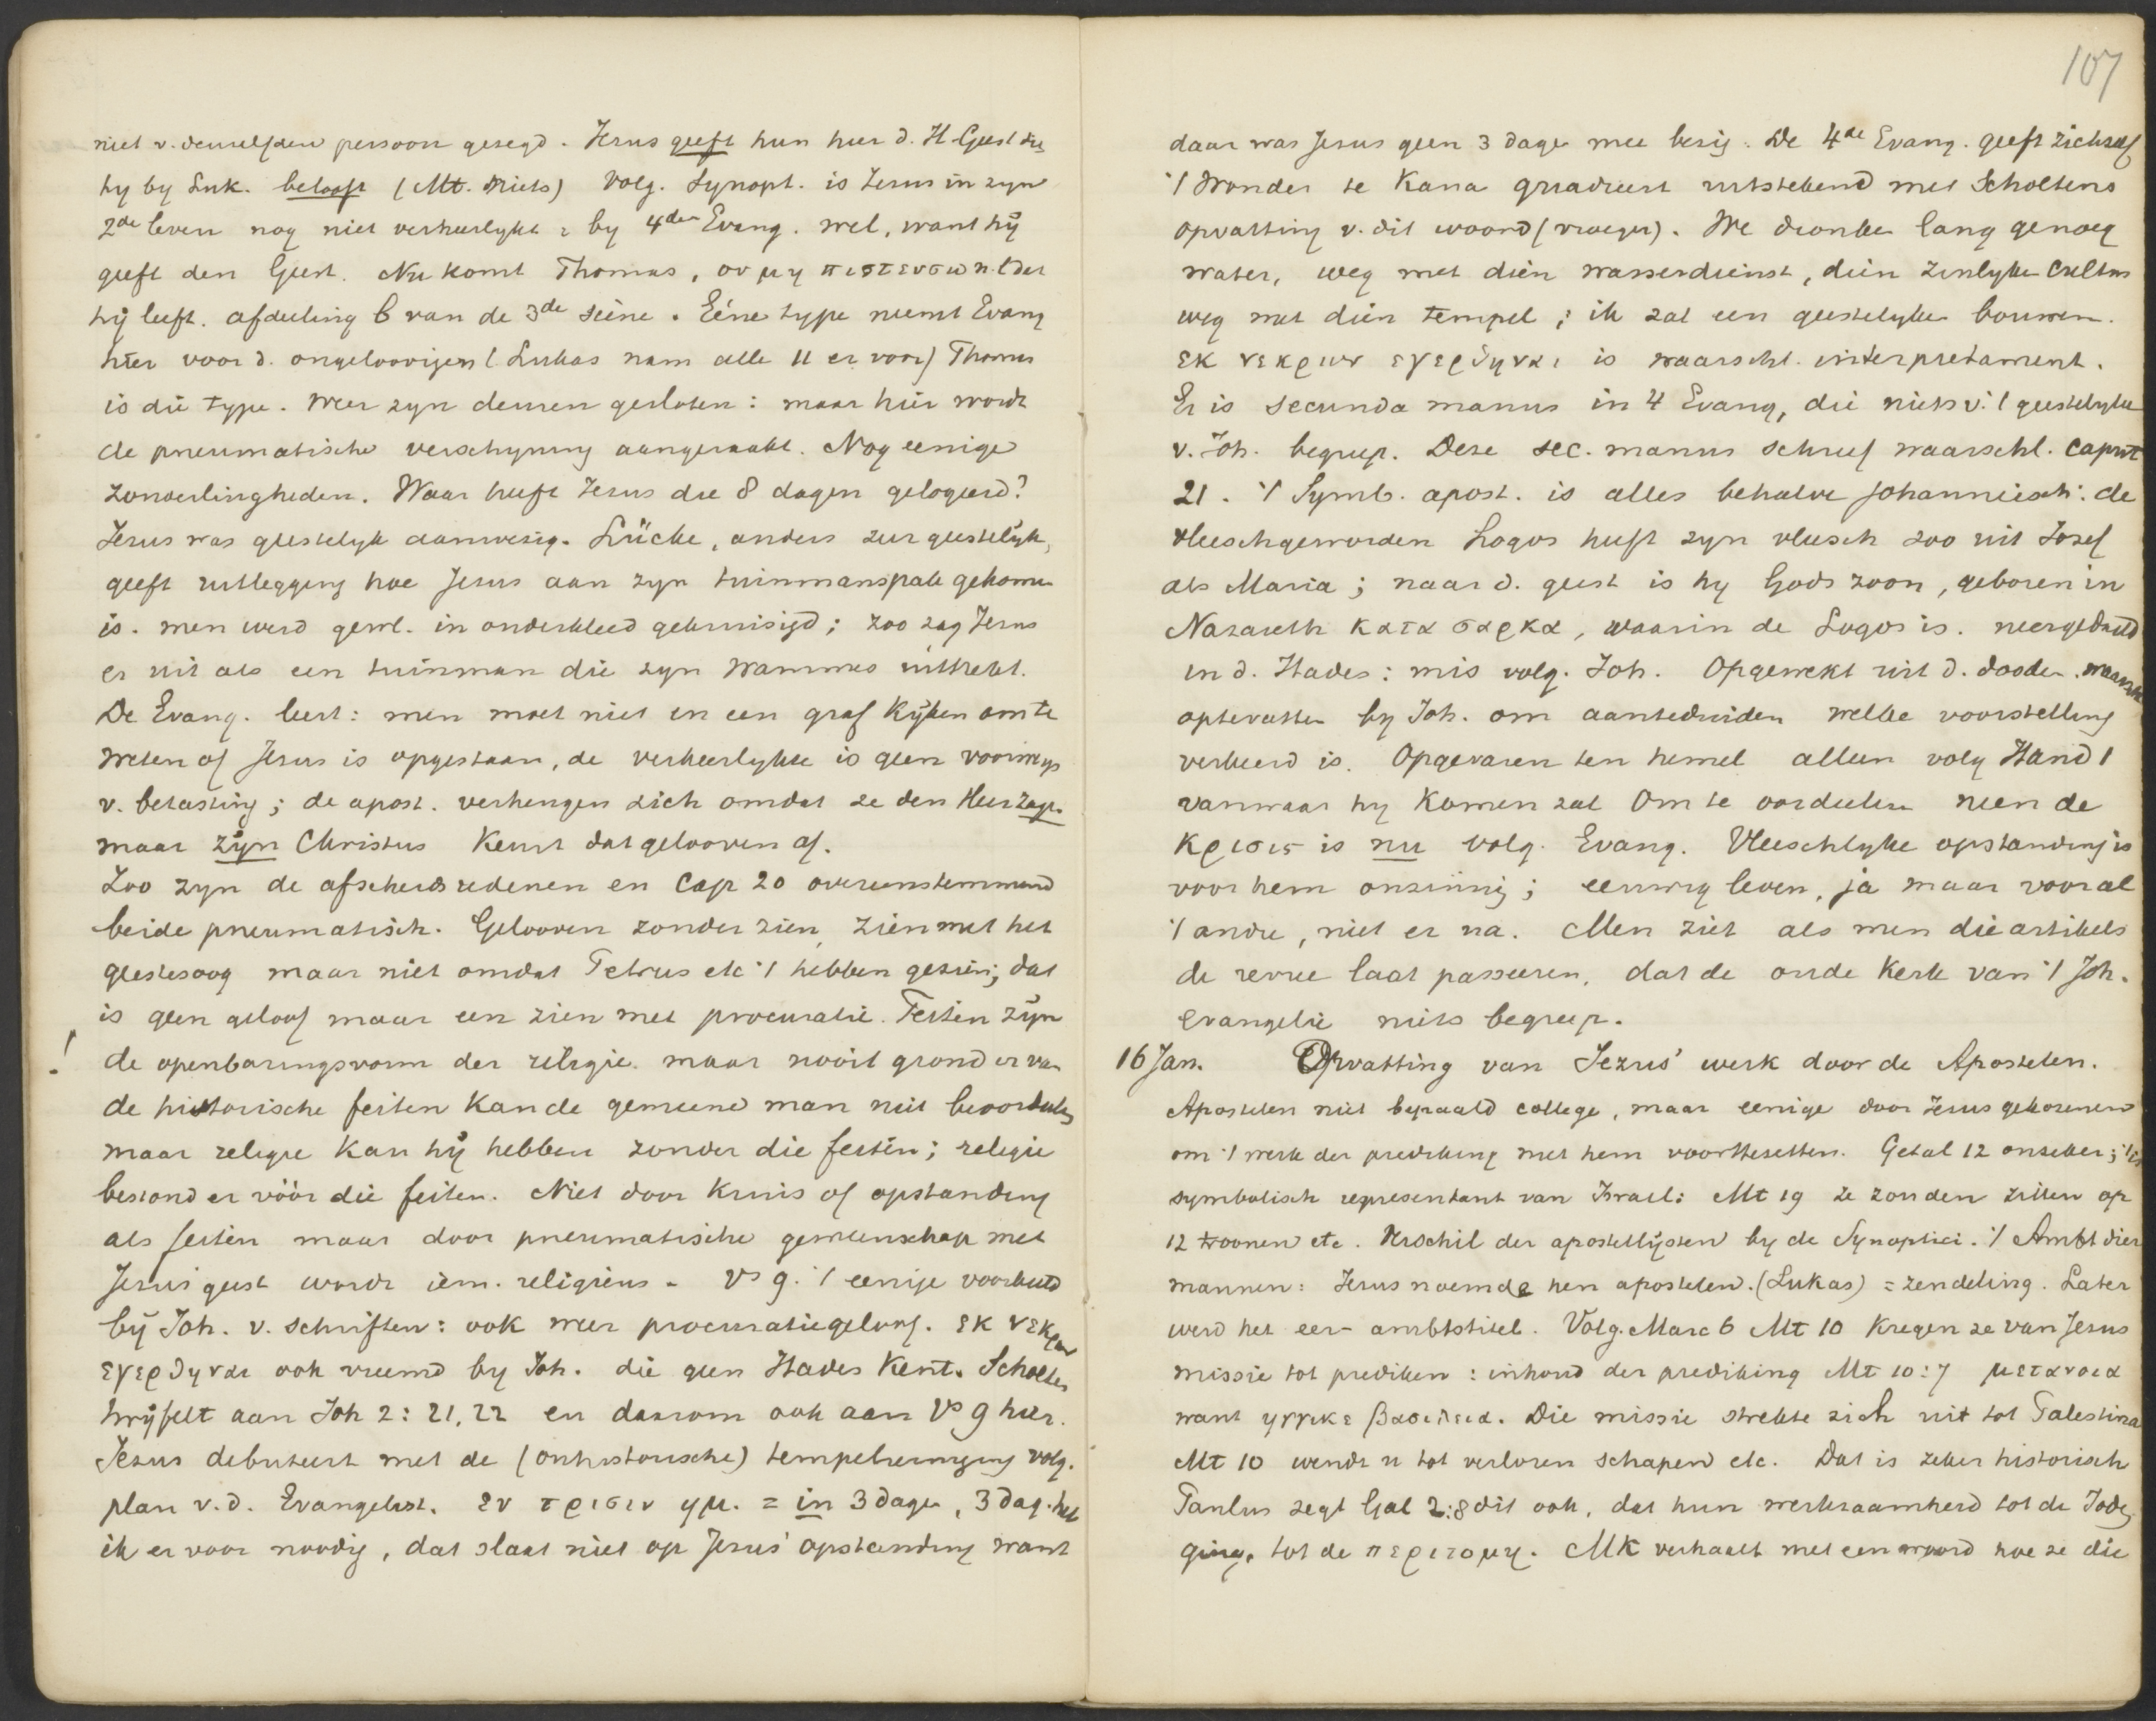 niet v. denzelfden persoon gezegd. Jezus geeft hun hier d. H. Geest die
hy by Luk. belooft (Mt. niets) Volg. Synopt. is Jezus in zyn
2de leven nog niet verheerlykt : by 4den Evang. wel, want hij
geeft den Geest. Nu komt Thomas, ου μη πιστευσω n.l. dat
hij leeft. afdeeling b van de 3de scène. Eéne type neemt Evang
hier voor d. ongeloovigen (Lukas nam alle 11 er voor) Thomas
is die type. Weer zyn deuren gesloten : maar hier wordt
de pneumatische verschyning aangeraakt. Nog eenige
zonderlingheden. Waar heeft Jezus die 8 dagen gelogeerd?
Jezus was geestelyk aanwezig. Lücke, anders zeer geestelijk,
geeft uitlegging hoe Jezus aan zyn tuinmanspak gekomen
is. men werd gewl. in onderkleed gekruisigd; zoo zag Jezus
er uit als een tuinman die zyn wammes uittrekt.
De Evang. leert : men moet niet in een graf kijken om te
weten of Jezus is opgestaan, de verheerlykte is geen voorwerp
v. betasting; de apost. verheugen zich omdat ze den Heer zagen
maar zijn Christus keurt dat gelooven af.
Zoo zyn de afscheidsredenen en Cap 20 overeenstemmend
beide pneumatisch. Gelooven zonder zien, zien met het
geestesoog maar niet omdat Petrus etc 't hebben gezien; dat
is geen geloof maar een zien met procuratie. Feiten zijn
! de openbaringsvorm der religie maar nooit grond ervan
de historische feiten kan de gemeene man niet beoordeelen
maar religie kan hij hebben zonder die feiten; religie
bestond er vóór die feiten. Niet door kruis of opstanding
als feiten maar door pneumatische gemeenschap met
Jezus' geest wordt iem. religieus - Vs 9. 't eenige voorbeeld
bij Joh. v. schriften : ook weer procuratiegeloof. εκ νεκρων
εγερθηναι ook vreemd by Joh. die geen Hades kent. Scholten
twijfelt aan Joh 2 : 21, 22 en daarom ook aan Vs 9 hier.
Jezus debuteert met de (onhistorische) tempelreiniging volg.
plan v. d. Evangelist. εν τρισιν ημ. = in 3 dagen, 3 dag. heb
ik er voor noodig, dat slaat niet op Jezus' opstanding want
107
daar was Jezus geen 3 dagen mee bezig. De 4de Evang. geeft zichzelf
't Wonder te Kana quadreert uitstekend met Scholtens
opvatting v. dit woord (vroeger). We dronken lang genoeg
water, weg met dien wasserdienst, dien zinlyken cultus
weg met dien tempel ; ik zal een geestelyken bouwen.
εκ νεκρων εγερθηναι is waarschl. interpretament.
Er is secunda manus in 4 Evang, die niets v. 't geestelyke
v. Joh. begreep. Deze sec. manus schreef waarschl. caput
21. 't Symb. apost. is alles behalve Johanneisch : de
vleeschgeworden Logos heeft zyn vleesch zoo uit Jozef
als Maria ; naar d. geest is hy Gods zoon, geboren in
Nazareth κατα σαρκα, waarin de Logos is. neergedaald
in d. Hades : mis volg. Joh. Opgewekt uit d. dooden. waarsch
optevatten by Joh. om aanteduiden welke voorstelling
verkeerd is. Opgevaren ten hemel alleen volg Hand 1
vanwaar hy komen zal om te oordeelen neen de
κρισις is nu volg. Evang. Vleeschlyke opstanding is
voor hem onzinnig ; eeuwig leven, ja maar vooral
't andre, niet er na. Men ziet als men die artikels
de revue laat passeeren, dat de oude kerk van 't Joh.
evangelie niets begreep.
16 Jan. Opvatting van Jezus' werk door de Apostelen.
Apostelen niet bepaald college, maar eenige door Jezus gekozenen
om 't werk der prediking met hem voorttezetten. Getal 12 onzeker ; 't is
symbolisch representant van Israel : Mt 19 ze zouden zitten op
12 troonen etc. Verschil der apostellijsten by de Synoptici. 't Ambt dier
mannen : Jezus noemde hen apostelen. (Lukas) = zendeling. Later
werd het eer- ambtstitel. Volg. Marc 6 Mt 10 kregen ze van Jezus
missie tot prediken : inhoud der prediking Mt 10 : 7 μετανοια
want ηγγικε βασιλεια. Die missie strekte zich uit tot Palestina
Mt 10 wendt u tot verloren schapen etc. Dat is zeker historisch
Paulus zegt Gal 2:8 dit ook, dat hun werkzaamheid tot de Joden
ging, tot de περιτομη. Mk verhaalt met een woord hoe ze die